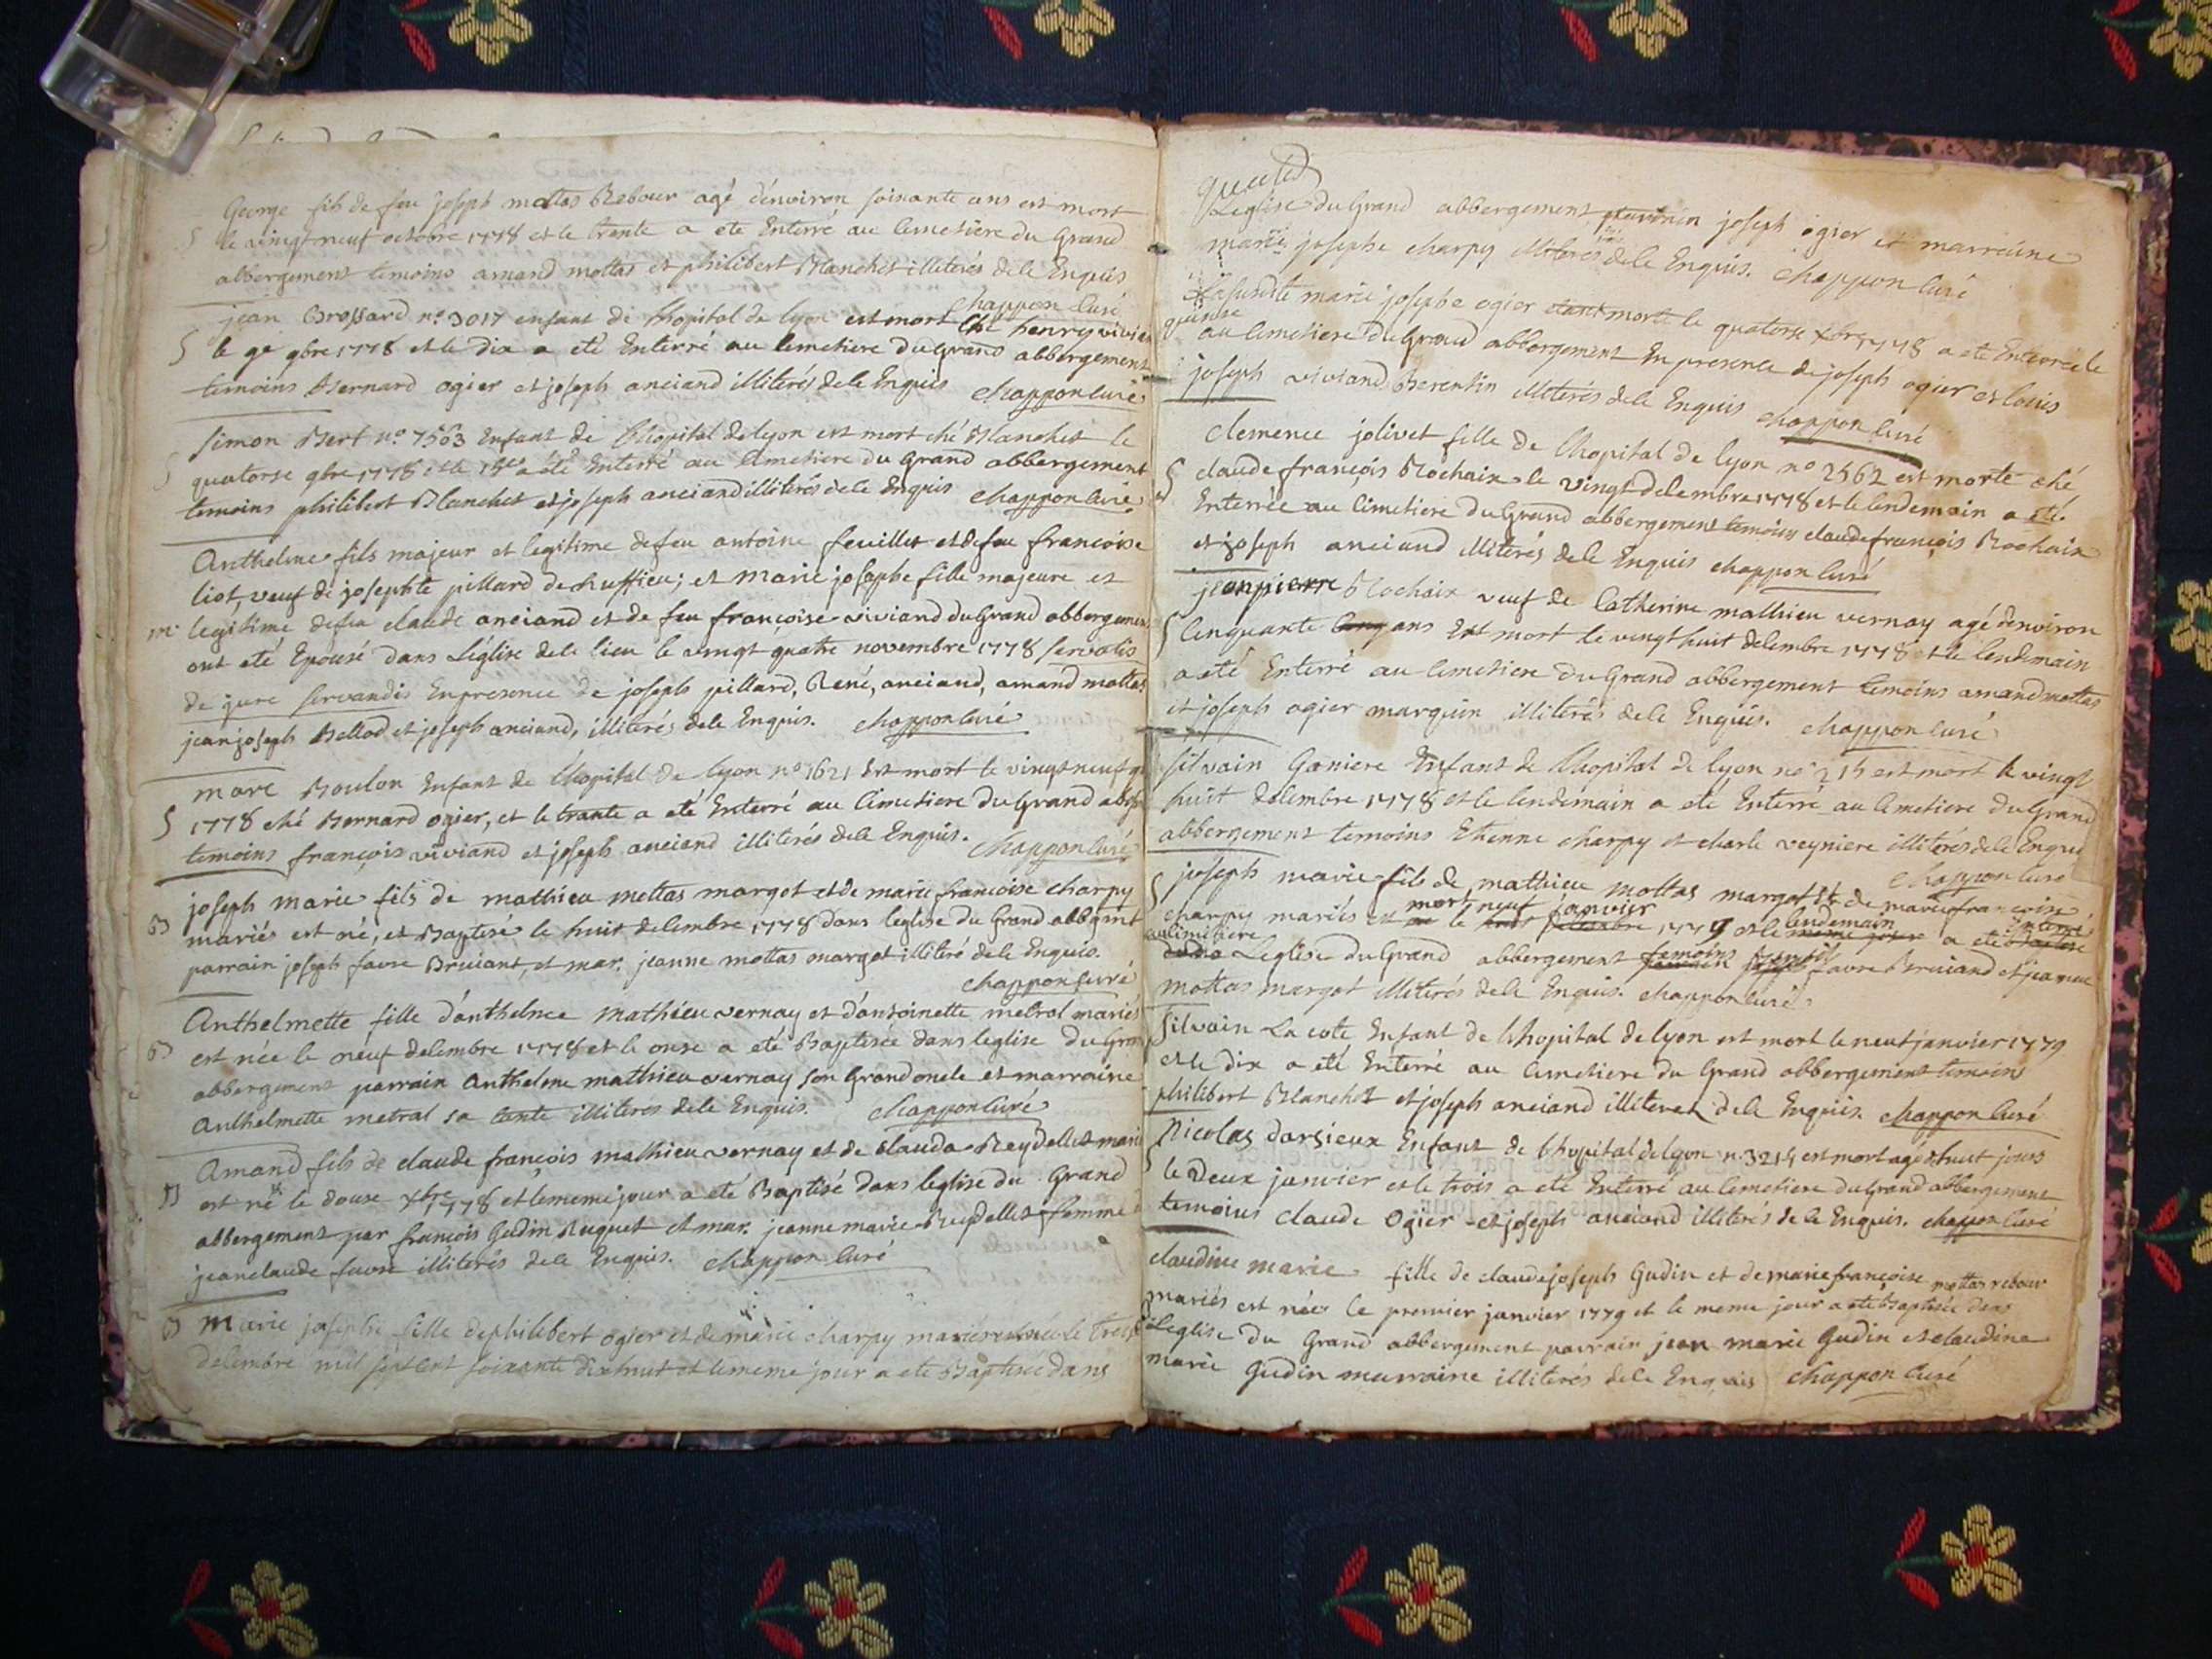 George fils de feu joseph mottas Rebour agé d'environ soixante ans est mort
le vingt neuf octobre 1778 et le trente a eté Enterré au Cimetiere du Grand
abbergement temoins amand mottas et philibert Blanchet illiterés de ce Enquis
chappon Curé
jean Brossard n.º 3017 enfant de l'hopital de lyon est mort ché henry vivian
le 9e 9bre 1778 et le dix a eté Enterré au Cemetiere du Grand abbergement
temoins Bernard ogier et joseph anciand illiterés de ce Enquis chappon curé
simon Bert nº 7563 Enfant de l'hopital de lyon est mort ché Blanchet le
quatorse 9bre 1778 et le 15e a eté Enterré au Cimetiere du Grand abbergement
temoins philibert Blanchet et joseph anciand illiterés de ce Enquis chappon Curé
Anthelme fils majeur et legitime de feu antoine feuillet et de feu francoise
liot, veuf de josephte pillard de Ruffieu; et marie josephe fille majeure et
m. legitime de feu claude anciand et de feu françoise viviand du Grand abbergement
ont eté Epousé dans L'église de ce lieu le vingt quatre novembre 1778 servatis
de jure servandis En presence de joseph pillard, René, anciand, amand mottas
jean joseph Bellod et joseph anciand, illiterés de ce Enquis. chappon Curé
marc Boulon Enfant de l'hopital de lyon nº 1621 Est mort le vingt neuf 9
1778 ché Bernard ogier, et le trante a eté Enterré au Cimetiere du Grand abbg
temoins françois viviand et joseph anciand illiterés de ce Enquis. chappon Curé
joseph marie fils de mathieu mottas margot et de marie francoise charpy
B mariés est né, et Baptisé le huit decembre 1778 dans leglise du Grand abbgmt
parrain joseph favre Bruiant, et mar. jeanne mottas margot illiteré de ce Enquis.
chappon curé
Anthelmette fille d'anthelme mathieu vernay et d'antoinette metral mariés
B est née le neuf decembre 1778 et le onse a eté Baptisée dans leglise du Gran
abbergement parrain Anthelme mathieu vernay son Grand oncle et marraine
anthelmette metral sa tante illiterés de ce Enquis. chappon curé
Amand fils de claude françois mathieu vernay et de clauda Reydellet marié
B est né le douse xbre 1778 et le meme jour a eté Baptisé dans leglise du Grand
abbergement par françois Gudin Ruguet et mar. jeanne marie Reydellet femme d
jean claude favre illiterés de ce Enquis. chappon Curé
B marie josephe fille de philibert ogier et de marie charpy mariés est née le treise
decembre mil sept cent soixante dix huit et le meme jour a eté Baptisée dans
L'eglise du Grand abbergement parrain joseph ogier et marreine
marie josephe charpy illiterés de ce Enquis. chappon Curé
La susdite marie josephe ogier morte le quatorse xbre 1778 a eté Enterrée le
quinse
au Cimetiere du Grand abbergement En presence de joseph ogier et louis
joseph viviand Berentin illiterés de ce Enquis chappon Curé
Clemence jolivet fille de l'hopital de lyon nº 2562 est morte ché
claude françois Rochaix le vingt decembre 1778 et le lendemain a eté
Enterrée au Cimetiere du Grand abbergement temoins claude françois Rochaix
et joseph anciand illiterés de ce Enquis chappon Curé
jean pierre Rochaix veuf de Catherine mathieu vernay agé d'environ
Cinquante cinq ans Est mort le vingt huit decembre 1778 et le lendemain
a eté Enterré au Cimetiere du Grand abbergement temoins amand mottas
et joseph ogier marquin illiterés de ce Enquis. chappon Curé
silvain Ganiere Enfant de l'hopital de lyon nº 215 est mort le vingt
huit decembre 1778 et le lendemain a eté Enterré au Cimetiere du Grand
abbergement temoins Etienne charpy et charle veyniere illiterés de ce Enquis
chappon Curé
joseph marie fils de mathieu mottas margot et de marie francoise
mort neuf janvier lendemain Enterré
charpy mariés est né le huit decembre 1779 et le meme jour a eté Baptisé
au cimitiere
dans L'eglise du Grand abbergement temoins joseph favre Bruiand et jeanne
mottas margot illiterés de ce Enquis. chappon Curé
silvain La cote Enfant de l'hopital de lyon est mort le neuf janvier 1779
et le dix a eté Enterré au Cimetiere du Grand abbergement temoins
philibert Blanchet et joseph anciand illiteres de ce Enquis. chappon Curé
Nicolas darsieux Enfant de l'hopital de lyon n. 3215 est mort agé de huit jours
le Deux janvier et le trois a eté Enterré au Cemetiere du Grand abbergement
temoins claude Ogier et joseph anciand illiterés de ce Enquis. chappon Curé
claudine marie fille de claude joseph Gudin et de marie françoise mottas rebour
mariés est née le premier janvier 1779 et le meme jour a eté Baptisée dans
L'eglise du Grand abbergement parrain jean marie Gudin et claudine
marie Gudin marraine illiterés de ce Enquis chappon Curé